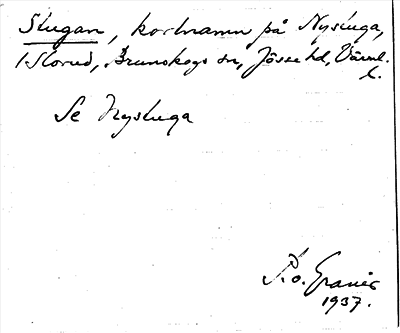 Slugan, kortnamn på Nysluga,
1 Slorud, Brunskogs sn, Jösse hd, Värml.
l.
Se Nysluga
R.o. Granér
1937.